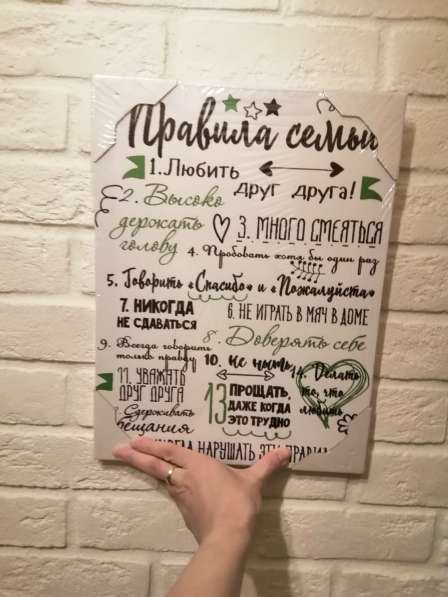 Правила семьи
1. Любить
друг друга!
2. Высоко
держать
голову
3. МНОГО СМЕЯТЬСЯ
4. Пробовать хотя бы один раз
5. Говорить «Спасибо» и «Пожалуйста»
6. НЕ ИГРАТЬ В МЯЧ В ДОМЕ
7. НИКОГДА
НЕ СДАВАТЬСЯ
8. Доверять себе
9. Всегда говорить
только правду
10. Не ныть
11. УВАЖАТЬ
ДРУГ ДРУГА
Сдерживать
обещания
13 ПРОЩАТЬ,
ДАЖЕ КОГДА
ЭТО ТРУДНО
14. Делать
то, что
любишь
НАРУШАТЬ ЭТИ ПРАВИЛ